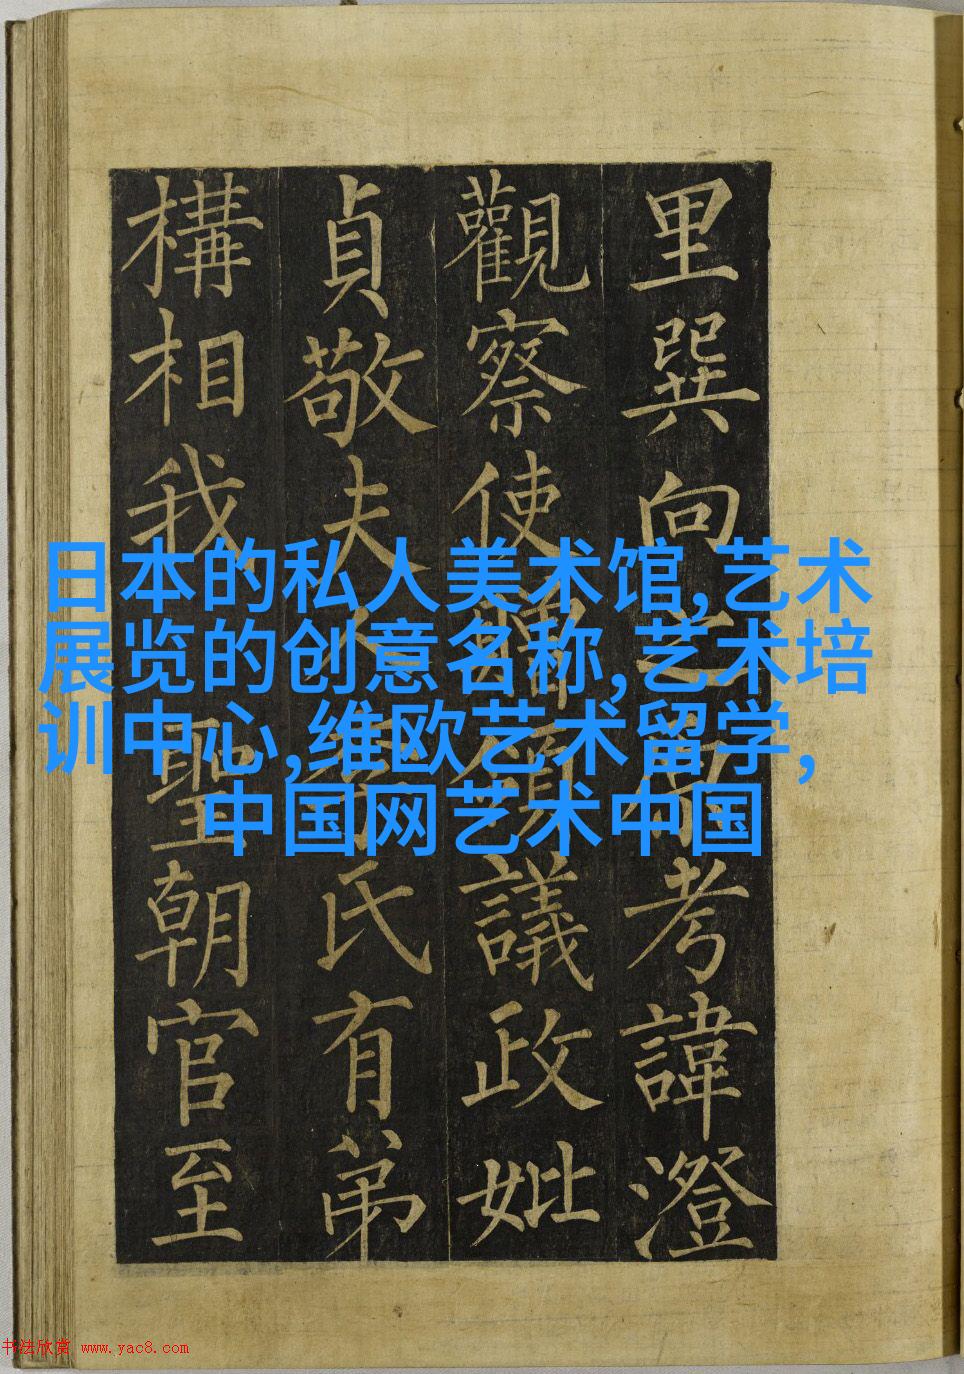 里巽向之考諱澄
觀察使贈領議政妣
貞敬夫人氏有弟
構相我聖朝官至
日本的私人美术馆,艺术
展览的创意名称,艺术培
训中心,维欧艺术留学,
中国网艺术中国
书法欣赏 www.yac8.com